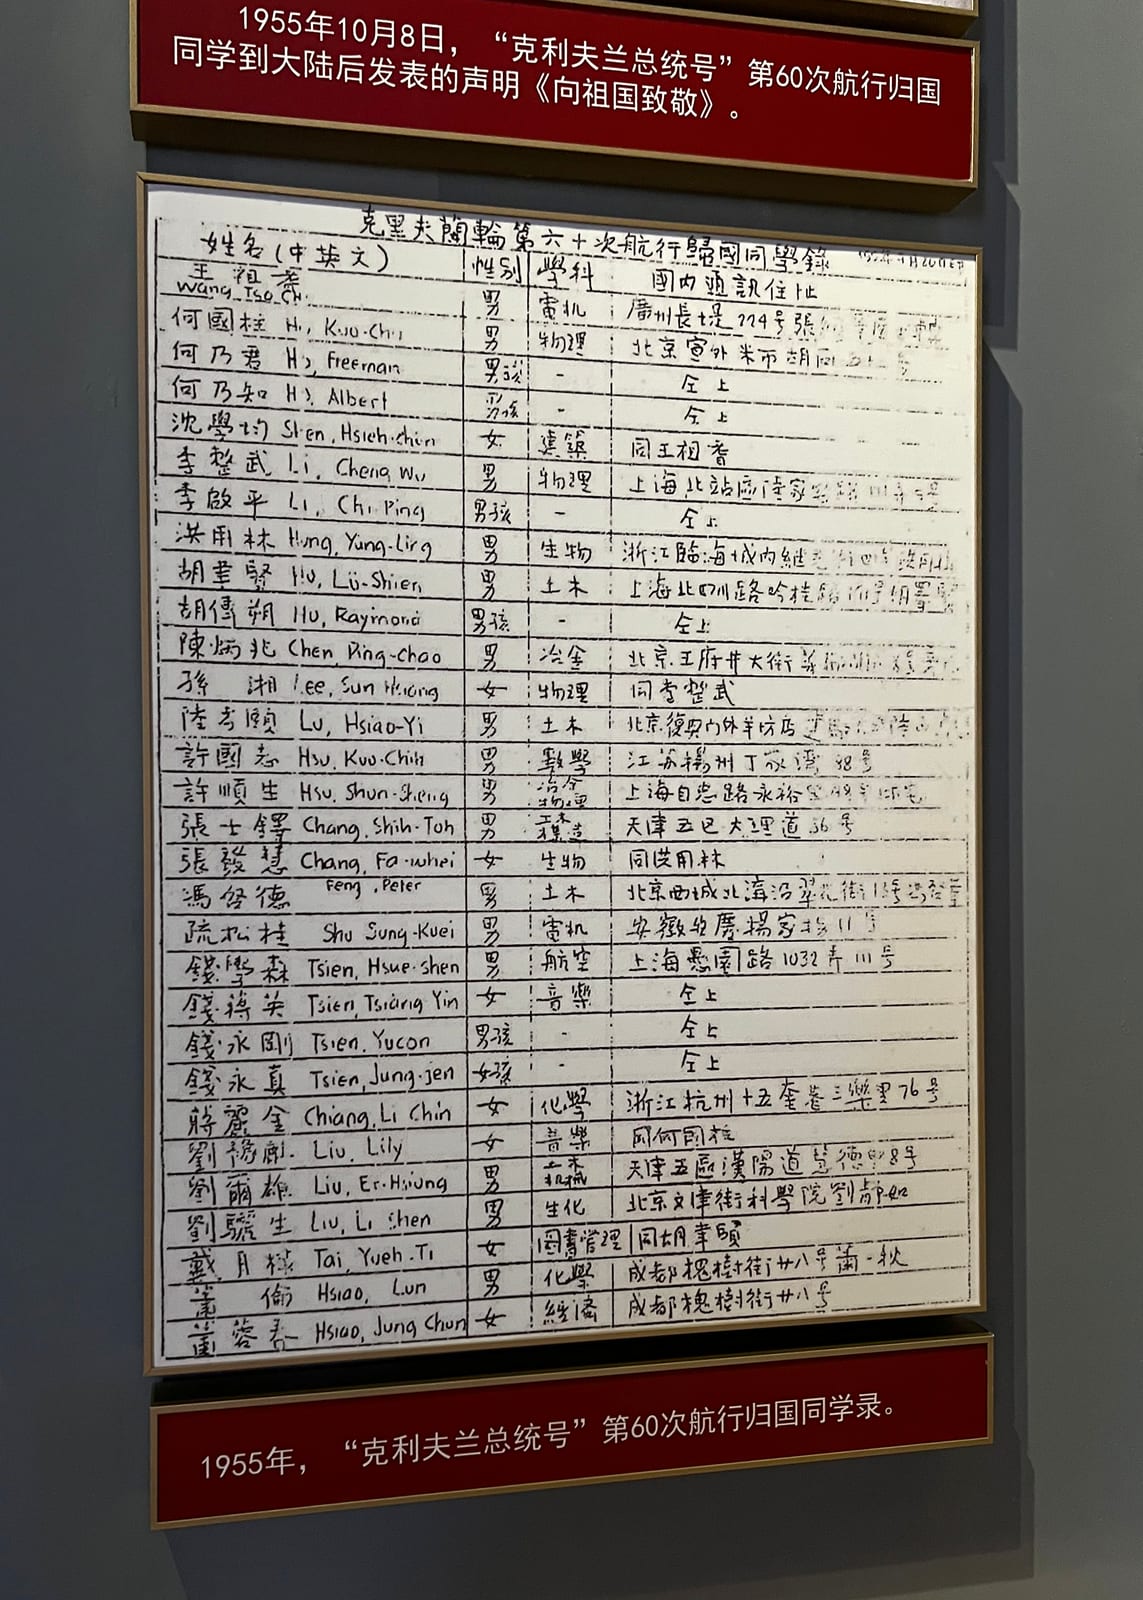 1955年10月8日，“克利夫兰总统号”第60次航行归国
同学到大陆后发表的声明《向祖国致敬》。
克里夫蘭輪第六十次航行歸國同學錄
姓名(中英文) 性别 學科 國内通訊住址
王祖耆 男 電机 廣州長堤224号張
Wang, Tso Chi
何國柱 Ho, Kuo-Chu 男 物理 北京宣外米市胡同
何乃君 Ho, Freeman 男孩 - 仝上
何乃知 Ho, Albert 男孩 - 仝上
沈學均 Shen, Hsieh-chun 女 建築 同王祖耆
李整武 Li, Cheng Wu 男 物理 上海北站區陸家
李啟平 Li, Chi Ping 男孩 - 仝上
洪用林 Hung, Yung-Ling 男 生物 浙江臨海城内继
胡聿賢 Hu, Lü-Shien 男 土木 上海北四川路哈桂路
胡傳朔 Hu, Raymond 男孩 - 仝上
陳炳兆 Chen, Ping-chao 男 冶金 北京王府井大街
孫湘 Lee, Sun Hsiang 女 物理 同李整武
陸孝頤 Lu, Hsiao-Yi 男 土木 北京復興门外羊坊店
許國志 Hsu, Kuo-Chih 男 數學 江苏揚州丁家湾 88号
許順生 Hsu, Shun-Sheng 男 冶金物理 上海自忠路永裕里
張士鐸 Chang, Shih-Toh 男 土木構造 天津五区大理道56号
張發慧 Chang, Fa-whei 女 生物 同洪用林
Feng, Peter
馮啓德 男 土木 北京西城北溝沿翠花街
疏松桂 Shu Sung-Kuei 男 電机 安徽安慶楊家拐11号
錢學森 Tsien, Hsue-shen 男 航空 上海愚園路1032弄111号
錢蔣英 Tsien, Tsiang Yin 女 音樂 仝上
錢永剛 Tsien, Yucon 男孩 - 仝上
錢永真 Tsien, Jung-jen 女孩 - 仝上
蔣麗金 Chiang, Li Chin 女 化學 浙江杭州十五奎巷三樂里76号
劉豫 Liu, Lily 女 音樂 同何國柱
劉爾雄 Liu, Er-Hsiung 男 土木机械 天津五區漢陽道慧德里8号
劉驪生 Liu, Li Shen 男 生化 北京文津街科學院劉静如
戴月棣 Tai, Yueh-Ti 女 圖書管理 同胡聿賢
萧倫 Hsiao, Lun 男 化學 成都槐樹街廿八号萧一秋
萧蓉春 Hsiao, Jung Chun 女 經済 成都槐樹街廿八号
1955年，“克利夫兰总统号”第60次航行归国同学录。